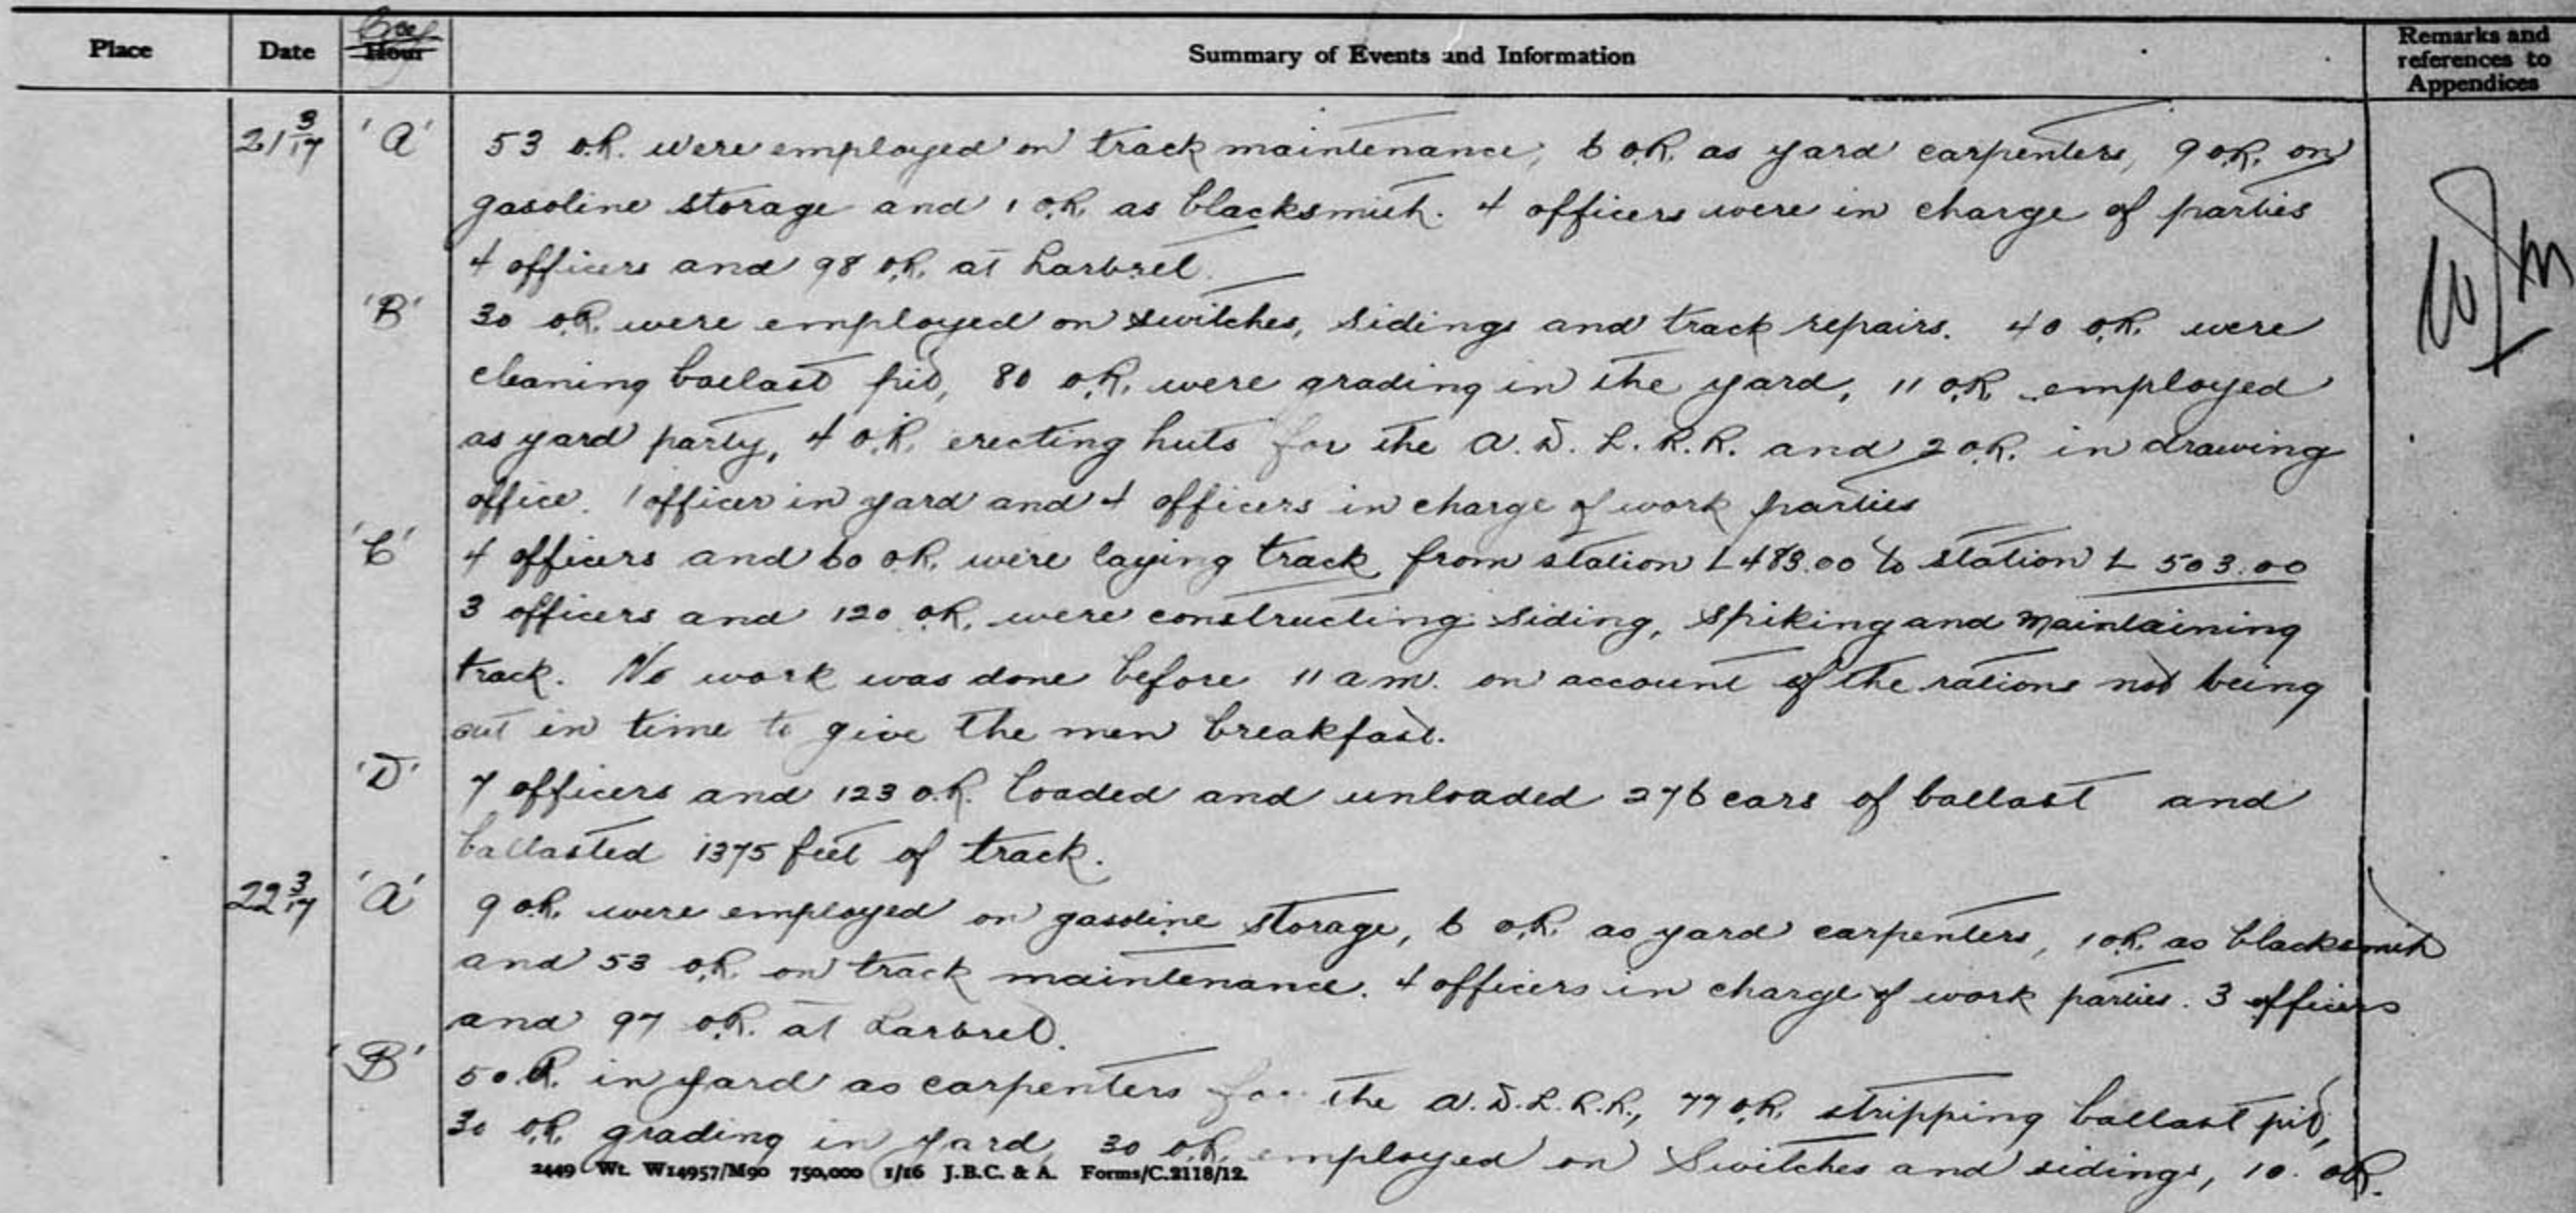 Place Date Coy Hour Summary of Events and Information Remarks and references to Appendices
21 3/17 'A' 53 O.R. were employed on track maintenance, 6 O.R. as yard carpenters, 9 O.R. on
gasoline storage and 1 O.R. as blacksmith. 4 officers were in charge of parties
4 officers and 98 O.R. at Larbrel.
'B' 30 O.R. were employed on switches, sidings and track repairs. 40 O.R. were
cleaning ballast pit, 80 O.R. were grading in the yard, 11 O.R. employed
as yard party, 4 O.R. erecting huts for the A.D.L.R.R. and 2 O.R. in drawing
office. 1 officer in yard and 4 officers in charge of work parties
'C' 4 officers and 60 O.R. were laying track from station L 483.00 to station L 503.00
3 officers and 120 O.R. were constructing siding, spiking and maintaining
track. No work was done before 11 am. on account of the rations not being
out in time to give the men breakfast.
'D' 7 officers and 123 O.R. loaded and unloaded 276 cars of ballast and
ballasted 1375 feet of track.
22 3/17 'A' 9 O.R. were employed on gasoline storage, 6 O.R. as yard carpenters, 1 O.R. as blacksmith
and 53 O.R. on track maintenance. 4 officers in charge of work parties. 3 officers
and 97 O.R. at Larbrel.
'B' 5 O.R. in yard as carpenters for the A.D.L.R.R., 77 O.R. stripping ballast pit,
30 O.R. grading in yard, 30 O.R. employed on switches and sidings, 10. O.R.
2449 Wt. W14957/M90 750,000 1/16 J.B.C. & A. Forms/C.2118/12.